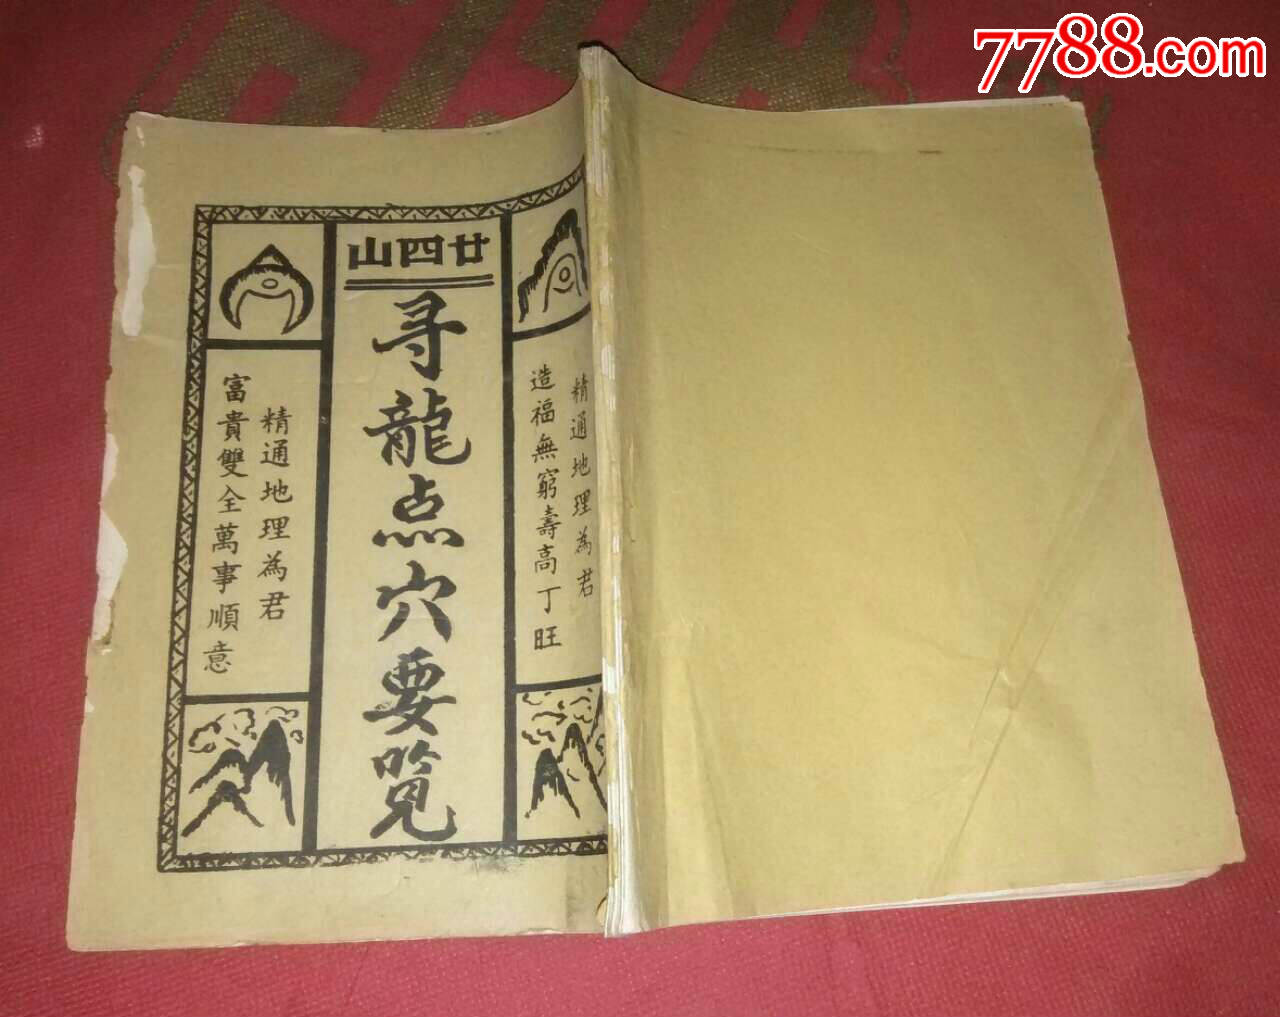 7788.com
廿四山
寻龍点穴要览
精通地理為君
造福無窮壽高丁旺
精通地理為君
富貴雙全萬事順意